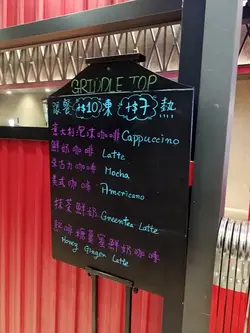 GRIDDLE TOP
跟餐 +$10 凍 +$7 熱
意大利泡沫咖啡 Cappuccino
鮮奶咖啡 Latte
朱古力咖啡 Mocha
美式咖啡 Americano
抹茶鮮奶 Greentea Latte
薑蜜鮮奶咖啡
Honey Ginger Latte